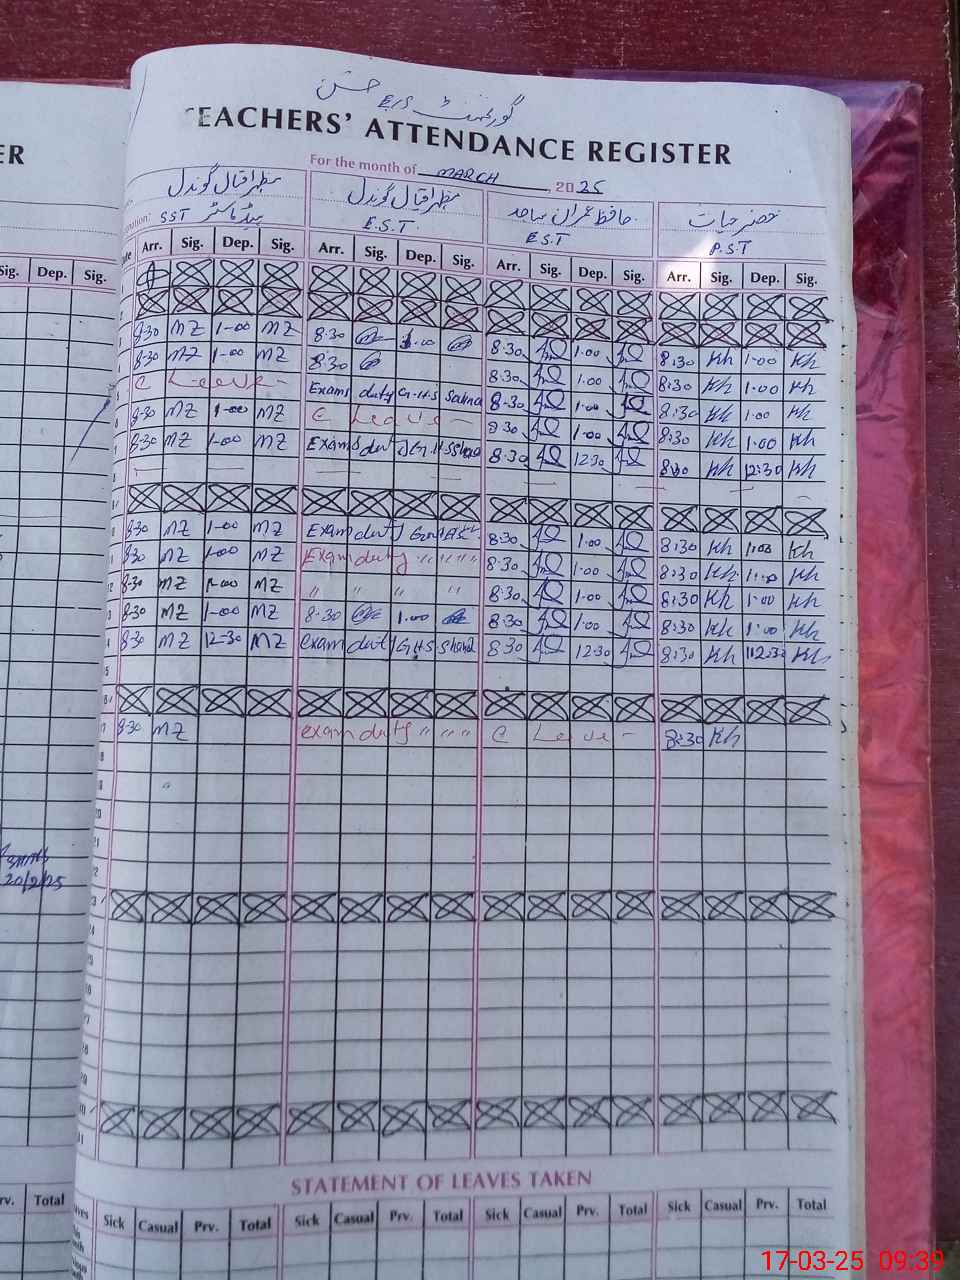 گورنمنٹ E/S جشن
TEACHERS' ATTENDANCE REGISTER
ER
For the month of MARCH, 2025
مظہر اقبال گوندل مظہر اقبال گوندل حافظ عمران ساجد خضر حیات
SST ہیڈ ماسٹر E.S.T E.S.T P.S.T
Sig. Dep. Sig.
Arr. Sig. Dep. Sig. Arr. Sig. Dep. Sig. Arr. Sig. Dep. Sig. Arr. Sig. Dep. Sig.
8-30 MZ 1-00 MZ 8:30 1.00 8:30 1.00 8:30 Kh 1.00 Kh
8-30 MZ 1-00 MZ 8:30 8:30 1.00 8:30 Kh 1.00 Kh
C Leave - Exams duty G.H.S 8-30 1.00 8:30 Kh 1.00 Kh
8-30 MZ 1-00 MZ C Leave - 8:30 1.00 8:30 Kh 1.00 Kh
8-30 MZ 1-00 MZ Exams duty G.H.S 8:30 12:30 8:30 Kh 12:30 Kh
8-30 MZ 1-00 MZ Exam duty 8:30 1.00 8:30 Kh 1:00 Kh
8-30 MZ 1-00 MZ Exam duty " " " " 8:30 1.00 8:30 Kh 1:00 Kh
8-30 MZ 1-00 MZ " " " " 8:30 1.00 8:30 Kh 1.00 Kh
8-30 MZ 1-00 MZ 8:30 1.00 8:30 1.00 8:30 Kh 1:00 Kh
8-30 MZ 12-30 MZ exam duty G.H.S 8:30 12:30 8:30 Kh 12:30 Kh
8-30 MZ exam duty " " " C Leave - 8:30 Kh
20/2/25
STATEMENT OF LEAVES TAKEN
Prv. Total
Sick Casual Prv. Total Sick Casual Prv. Total Sick Casual Prv. Total Sick Casual Prv. Total
17-03-25 09:39